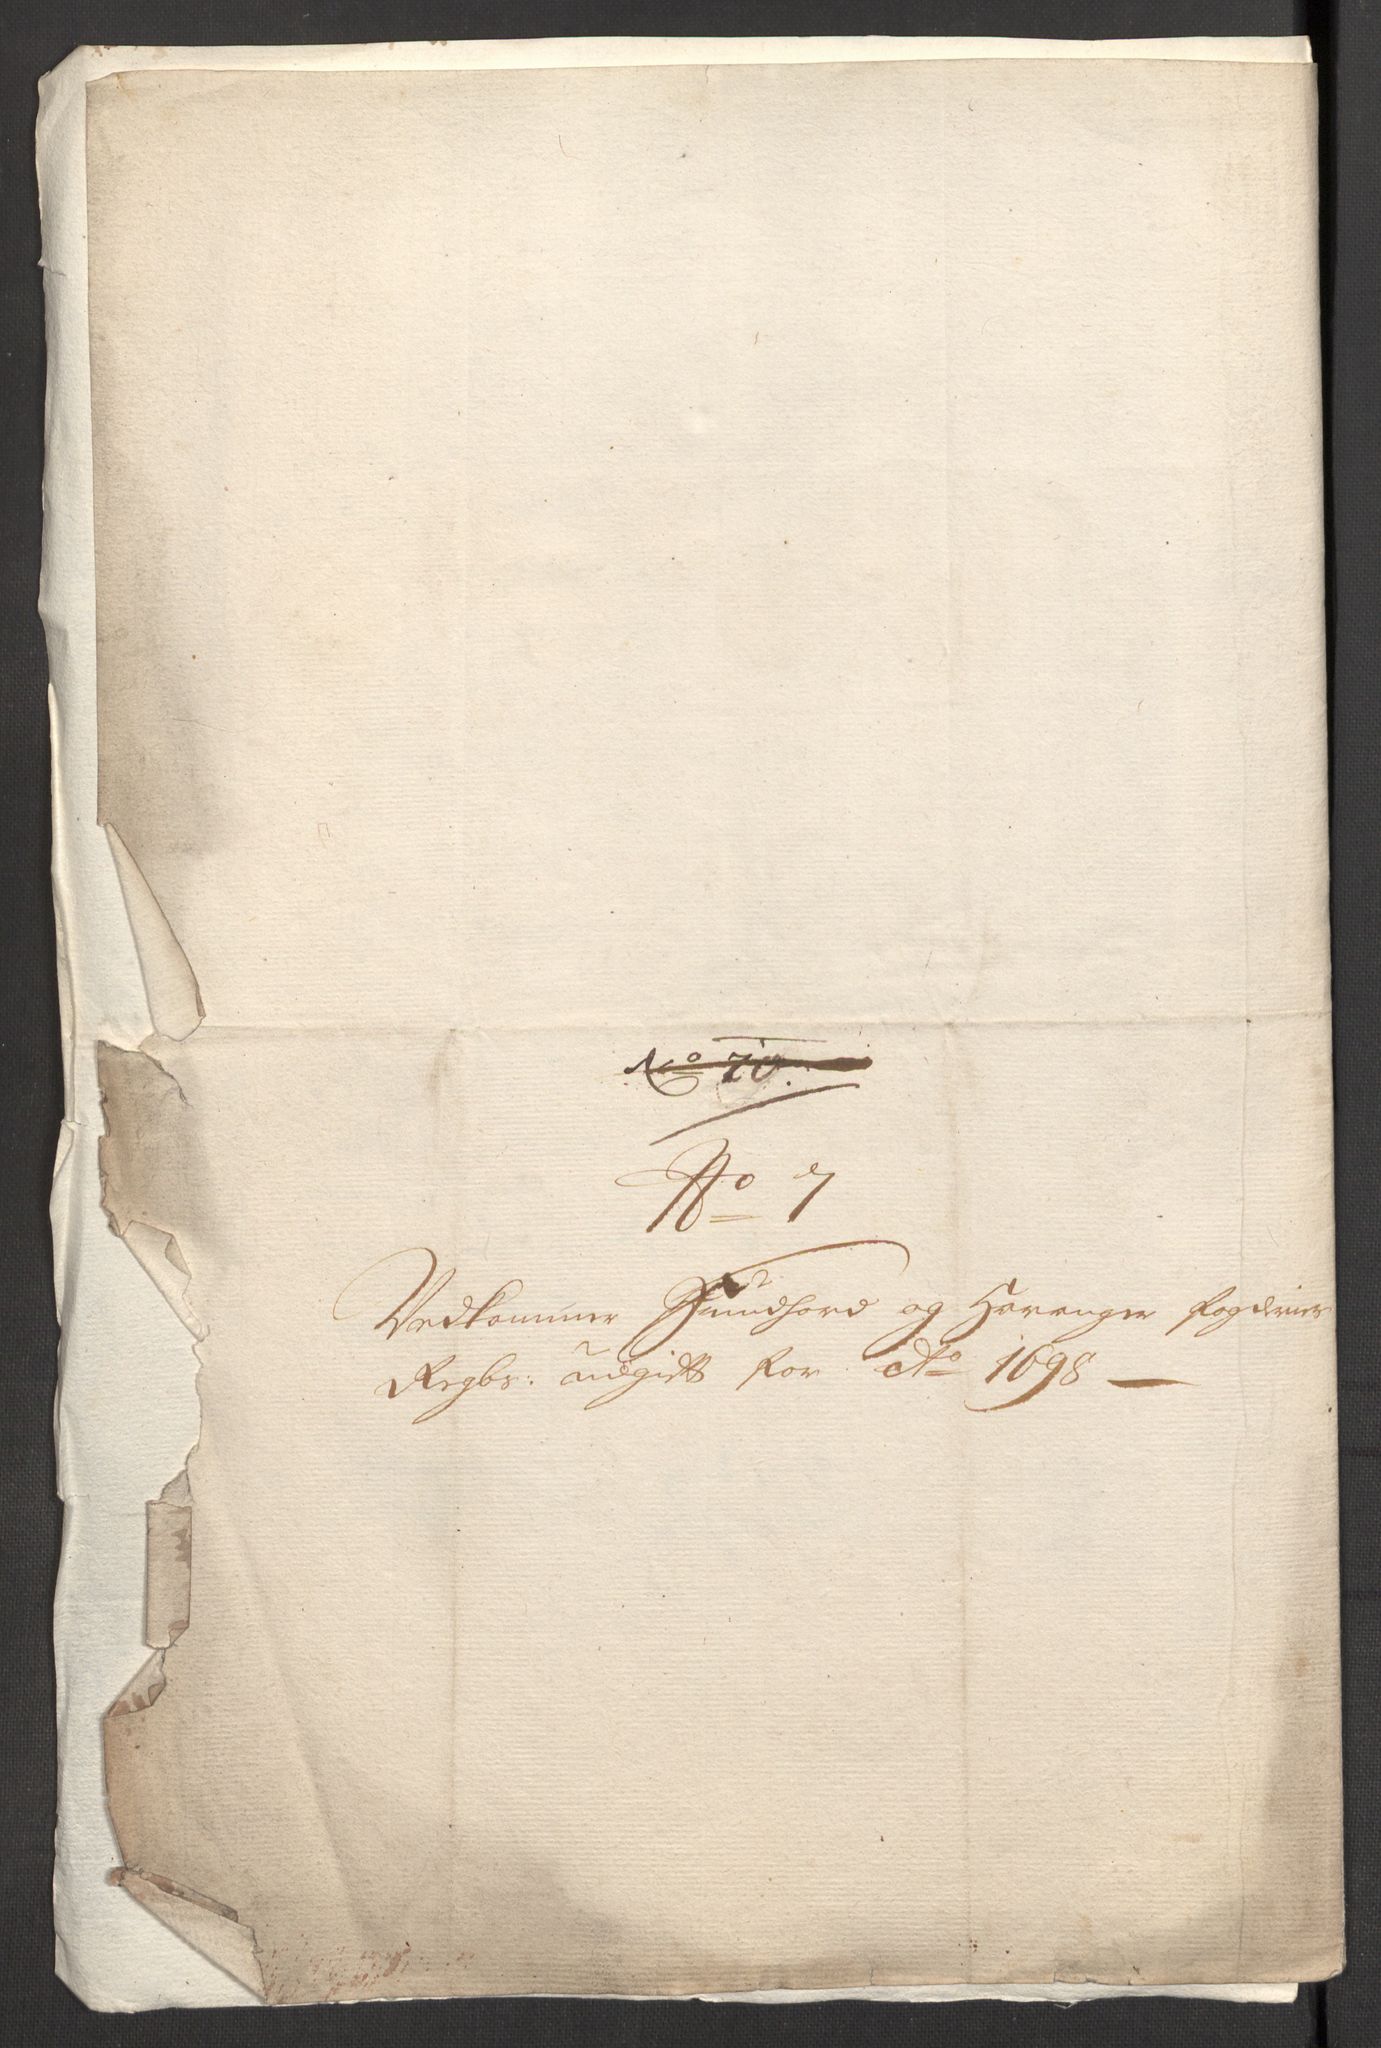 No 70.
No 7
Vedkommer Sundhord og Haranger fogderier
Regbs: udgift for Ao 1698